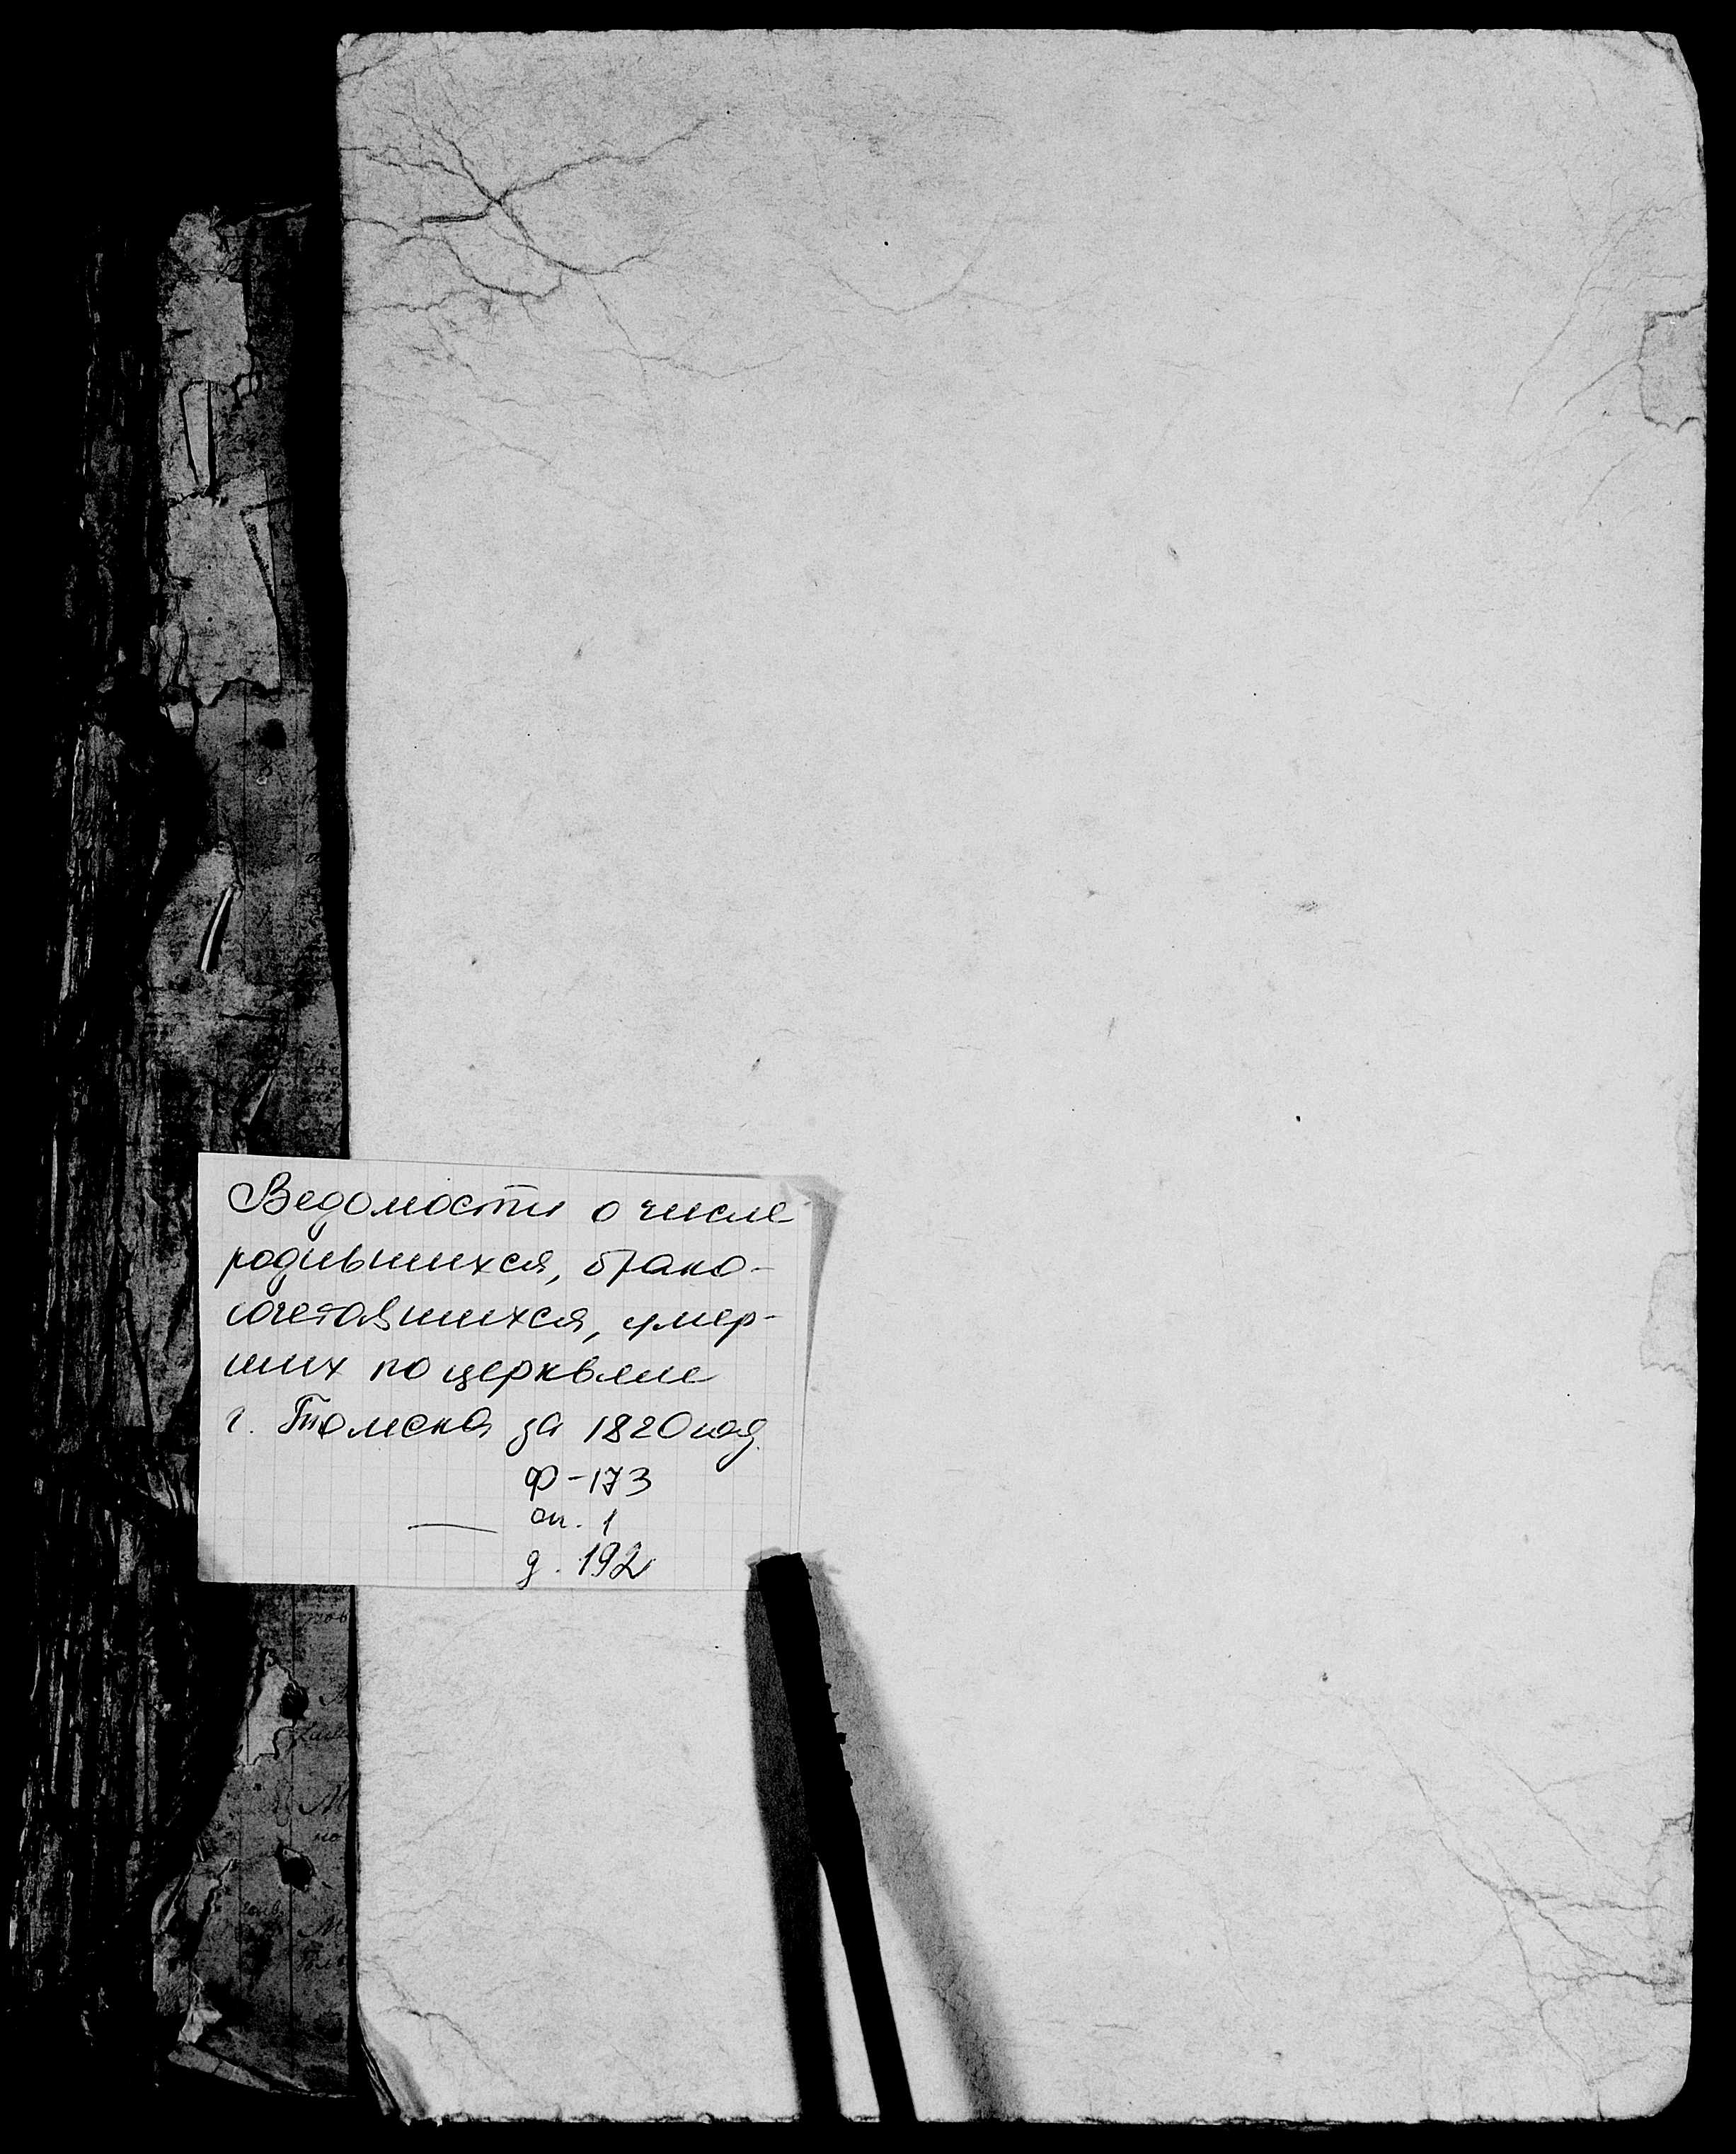 Ведомости о числе
родившихся, брако-
сочетавшихся, умер-
ших по церквям
г. Томска за 1820 год.
Ф-173
оп. 1
д. 192